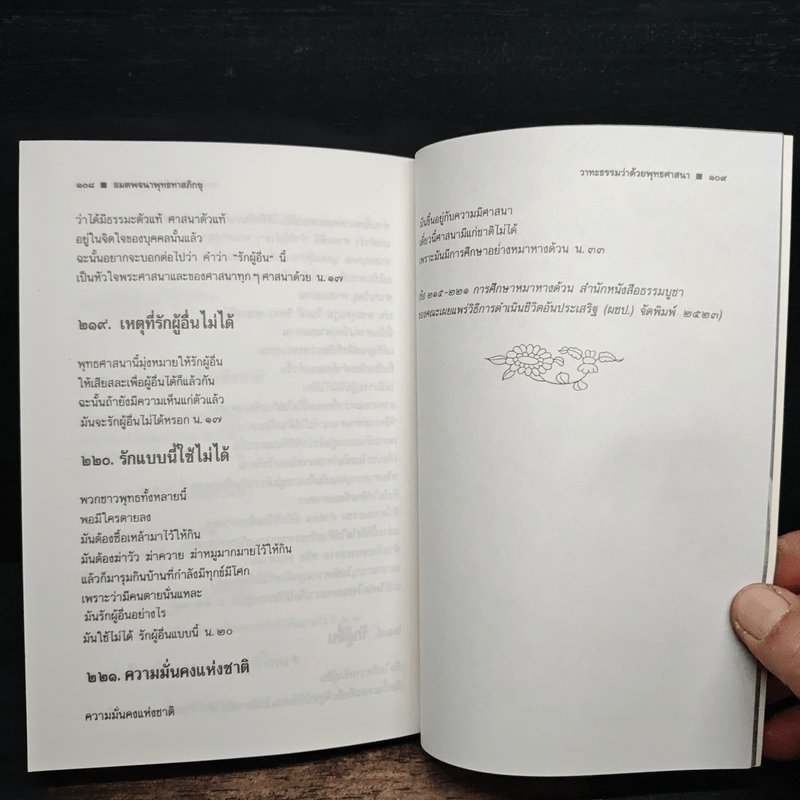 ๑๐๘ ■ อมตพจนาพุทธทาสภิกขุ
ว่าได้มีธรรมะตัวแท้ ศาสนาตัวแท้
อยู่ในจิตใจของบุคคลนั้นแล้ว
ฉะนั้นอยากจะบอกต่อไปว่า คำว่า "รักผู้อื่น" นี้
เป็นหัวใจพระศาสนาและของศาสนาทุกๆ ศาสนาด้วย น.๑๗
๒๑๙. เหตุที่รักผู้อื่นไม่ได้
พุทธศาสนานี้มุ่งหมายให้รักผู้อื่น
ให้เสียสละเพื่อผู้อื่นได้ก็แล้วกัน
ฉะนั้นถ้ายังมีความเห็นแก่ตัวแล้ว
มันจะรักผู้อื่นไม่ได้หรอก น.๑๗
๒๒๐. รักแบบนี้ใช้ไม่ได้
พวกชาวพุทธทั้งหลายนี้
พอมีใครตายลง
มันต้องซื้อเหล้ามาไว้ให้กิน
มันต้องฆ่าวัว ฆ่าควาย ฆ่าหมูมากมายไว้ให้กิน
แล้วก็มารุมกินบ้านที่กำลังมีทุกข์มีโศก
เพราะว่ามีคนตายนั่นแหละ
มันรักผู้อื่นอย่างไร
มันใช้ไม่ได้ รักผู้อื่นแบบนี้ น.๒๐
๒๒๑. ความมั่นคงแห่งชาติ
ความมั่นคงแห่งชาติ
วาทะธรรมว่าด้วยพุทธศาสนา ■ ๑๐๙
มันขึ้นอยู่กับความมีศาสนา
เดี๋ยวนี้ศาสนามีแก่ชาติไม่ได้
เพราะมันมีการศึกษาอย่างหมาหางด้วน น.๓๓
๒๑๕-๒๒๑ การศึกษาหมาหางด้วน สำนักหนังสือธรรมบูชา
ของคณะเผยแพร่วิธีการดำเนินชีวิตอันประเสริฐ (ผชป.) จัดพิมพ์ ๒๕๒๓)